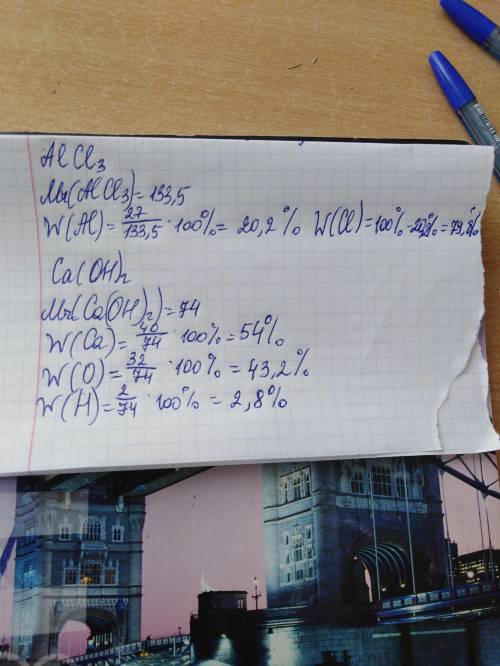 AlCl₃
Mr(AlCl₃)=133,5
W(Al)=27/133,5·100%= 20,2% W(Cl)=100%-20,2%=79,8%
Ca(OH)₂
Mr(Ca(OH)₂)=74
W(Ca)=40/74·100%=54%
W(O)=32/74·100%=43,2%
W(H)=2/74·100%=2,8%